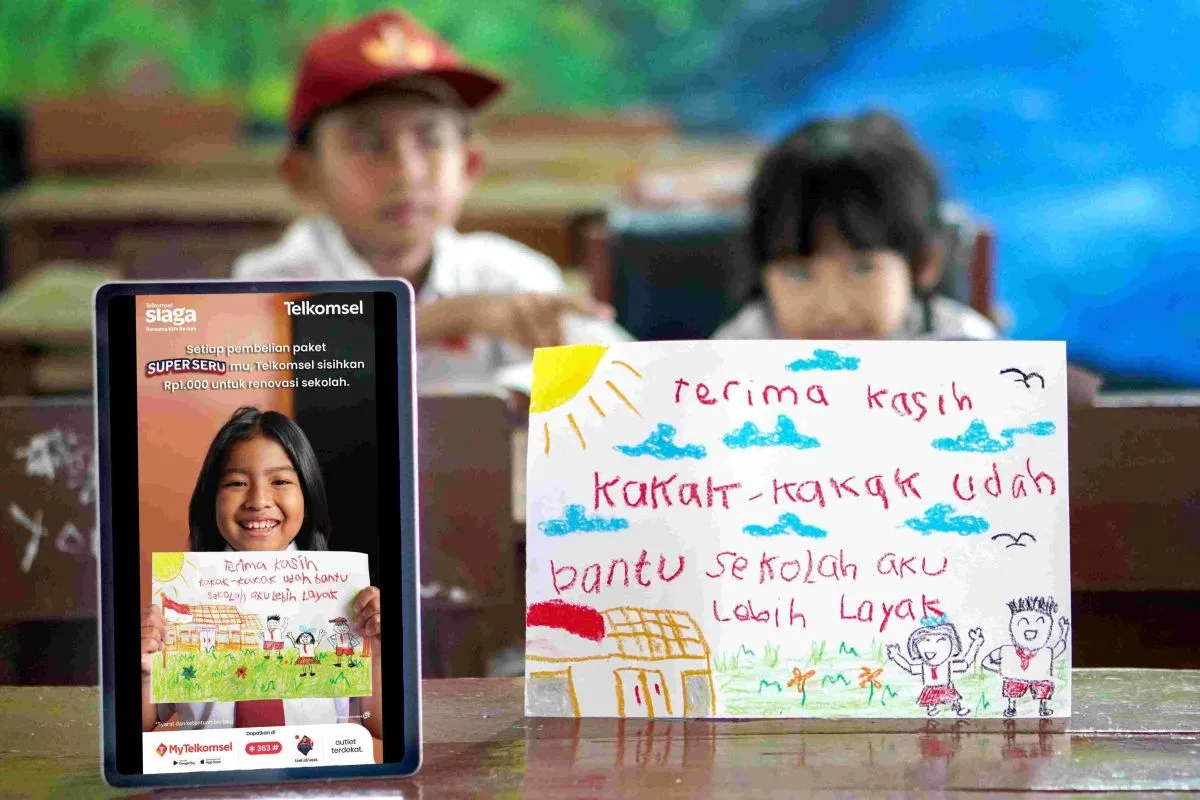 Telkomsel
siaga
Bersama Kita Berkah
Telkomsel
Setiap pembelian paket
SUPER SERU mu, Telkomsel sisihkan
Rp1.000 untuk renovasi sekolah.
terima kasih
kakak-kakak udah bantu
sekolah aku lebih layak
*Syarat dan ketentuan berlaku
MyTelkomsel
Google Play
App Store
Dapatkan di
*363#
outlet
terdekat.
terima kasih
kakak-kakak udah
bantu sekolah aku
Lebih Layak